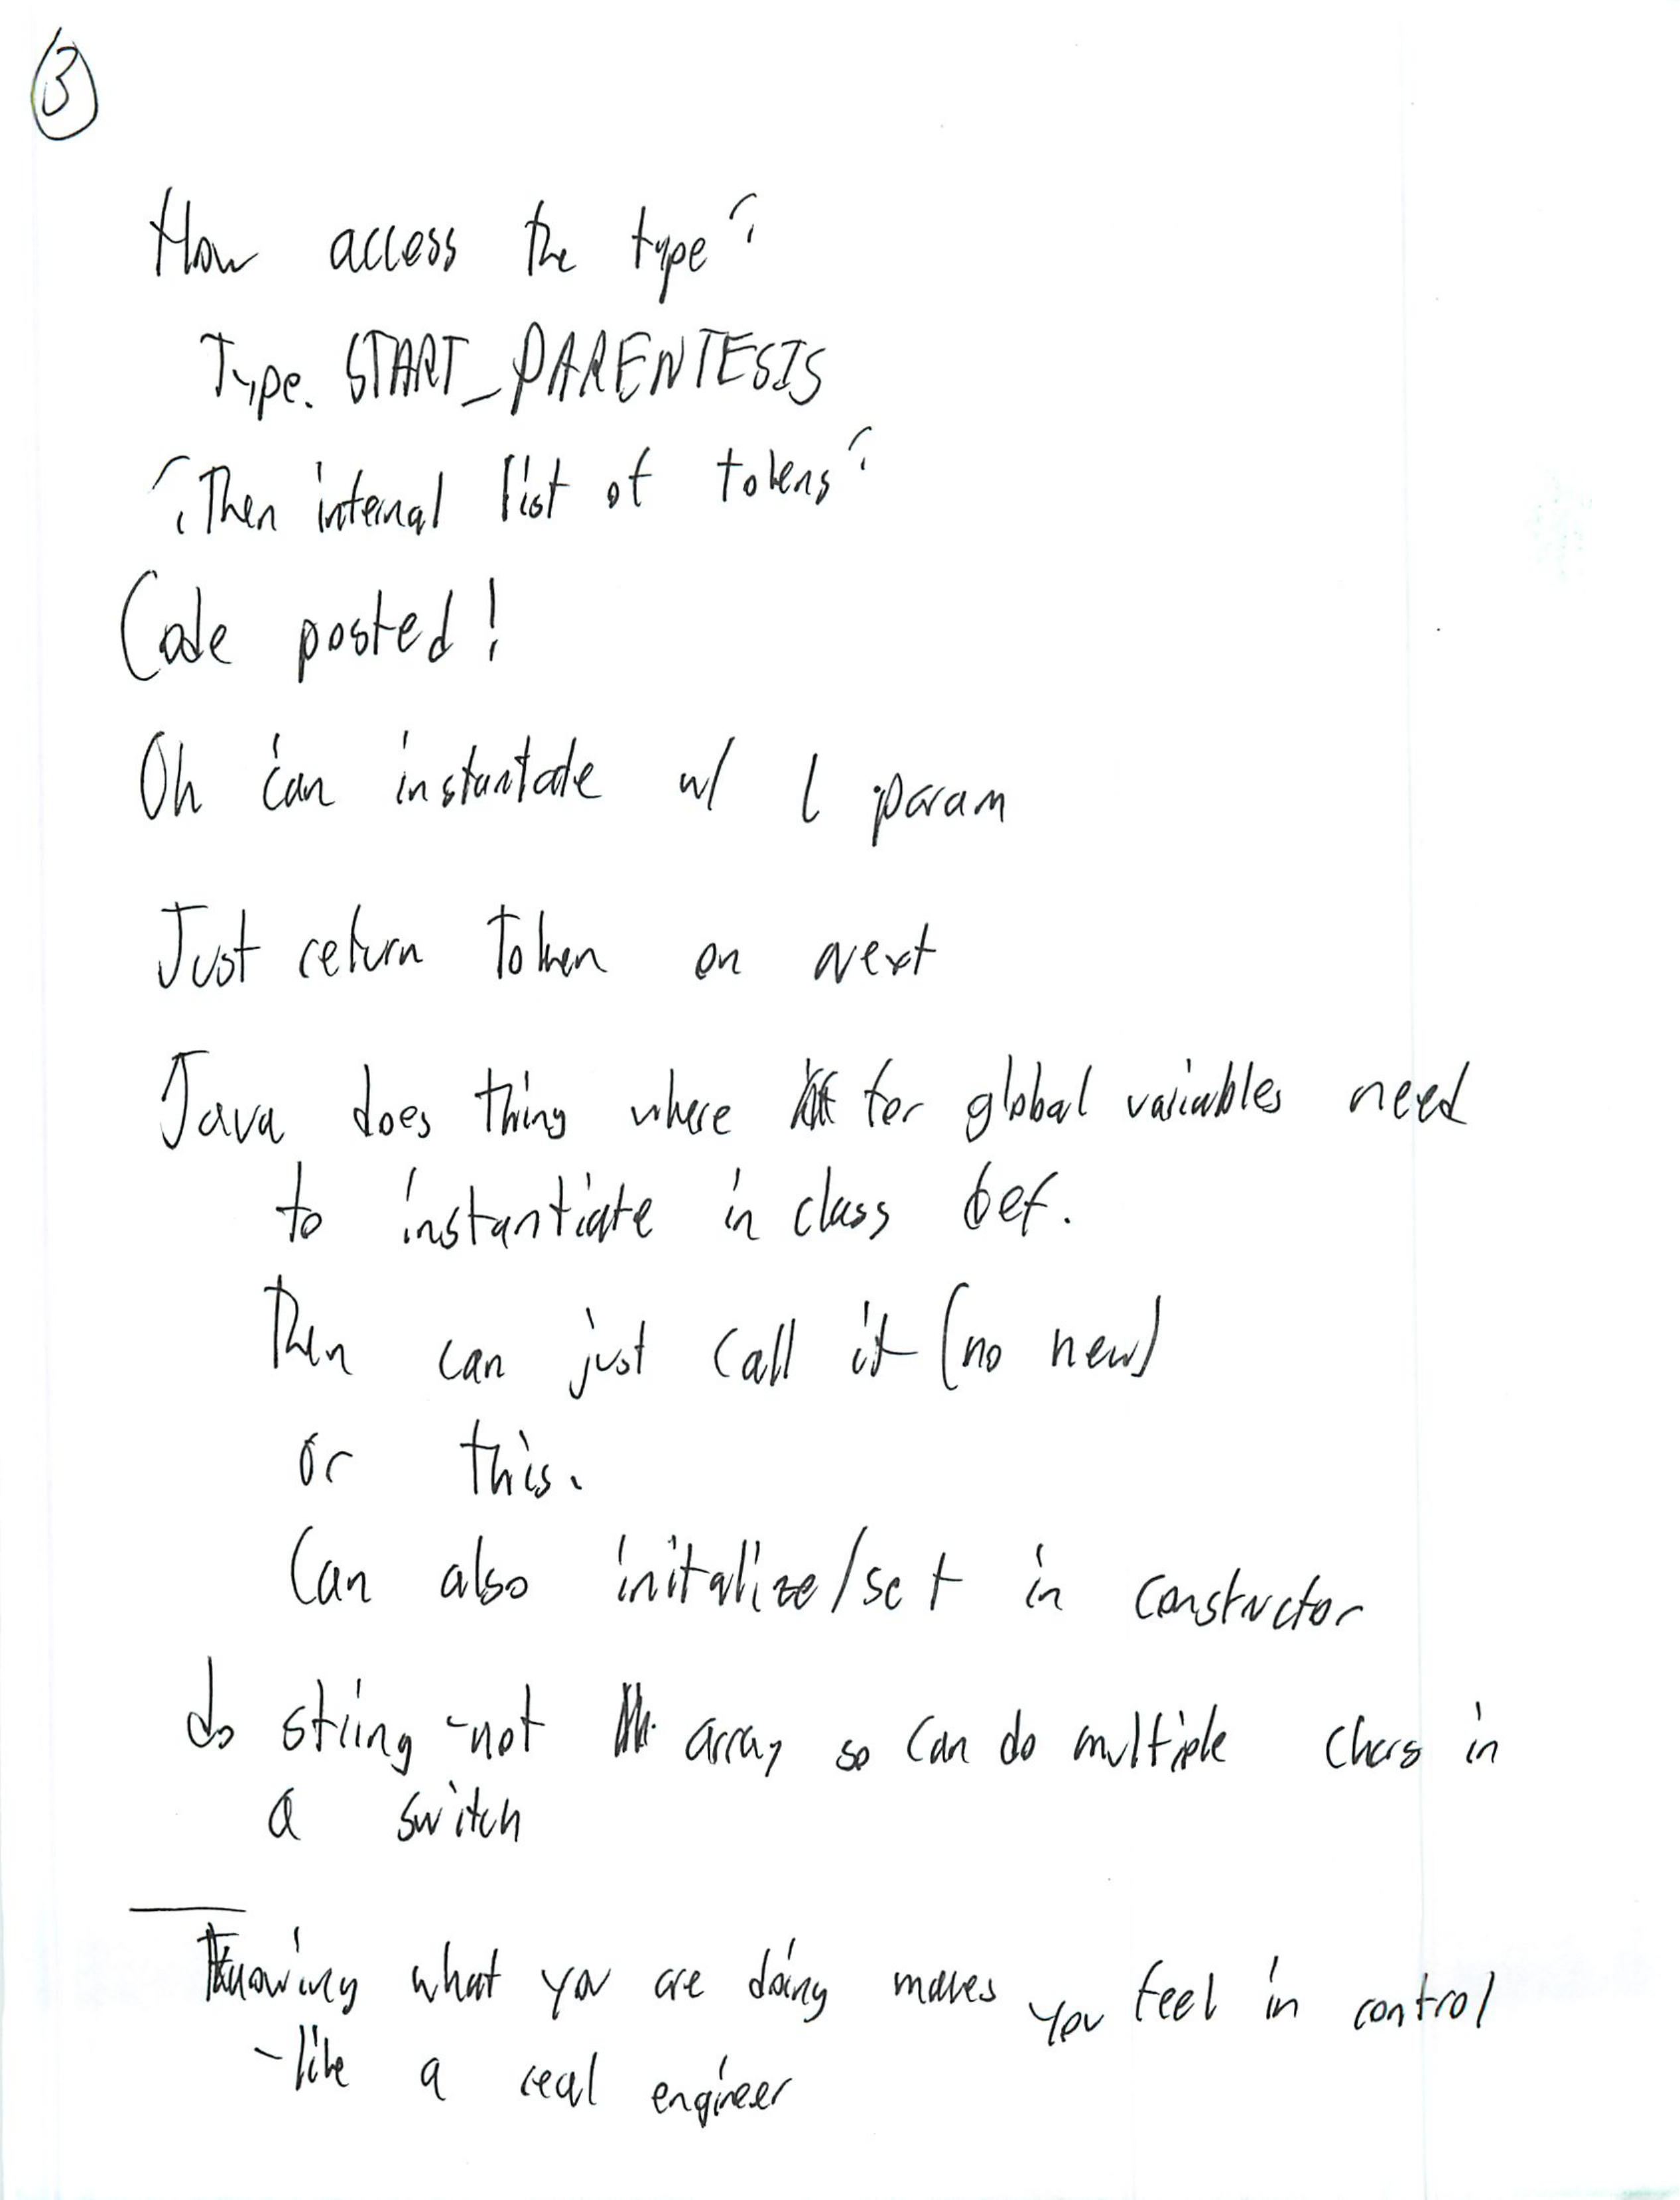 3
How access the type?
Type. START_PARENTESIS
?Then internal list of tokens?
Code posted!
Oh can instantate w/ 1 param
Just return Token on next
Java does thing where for global variables need
to instantiate in class def.
Then can just call it (no new)
or this.
Can also initalize/set in constructor
do string -not array so can do multiple chars in
a switch
Knowing what you are doing makes you feel in control
-like a real engineer